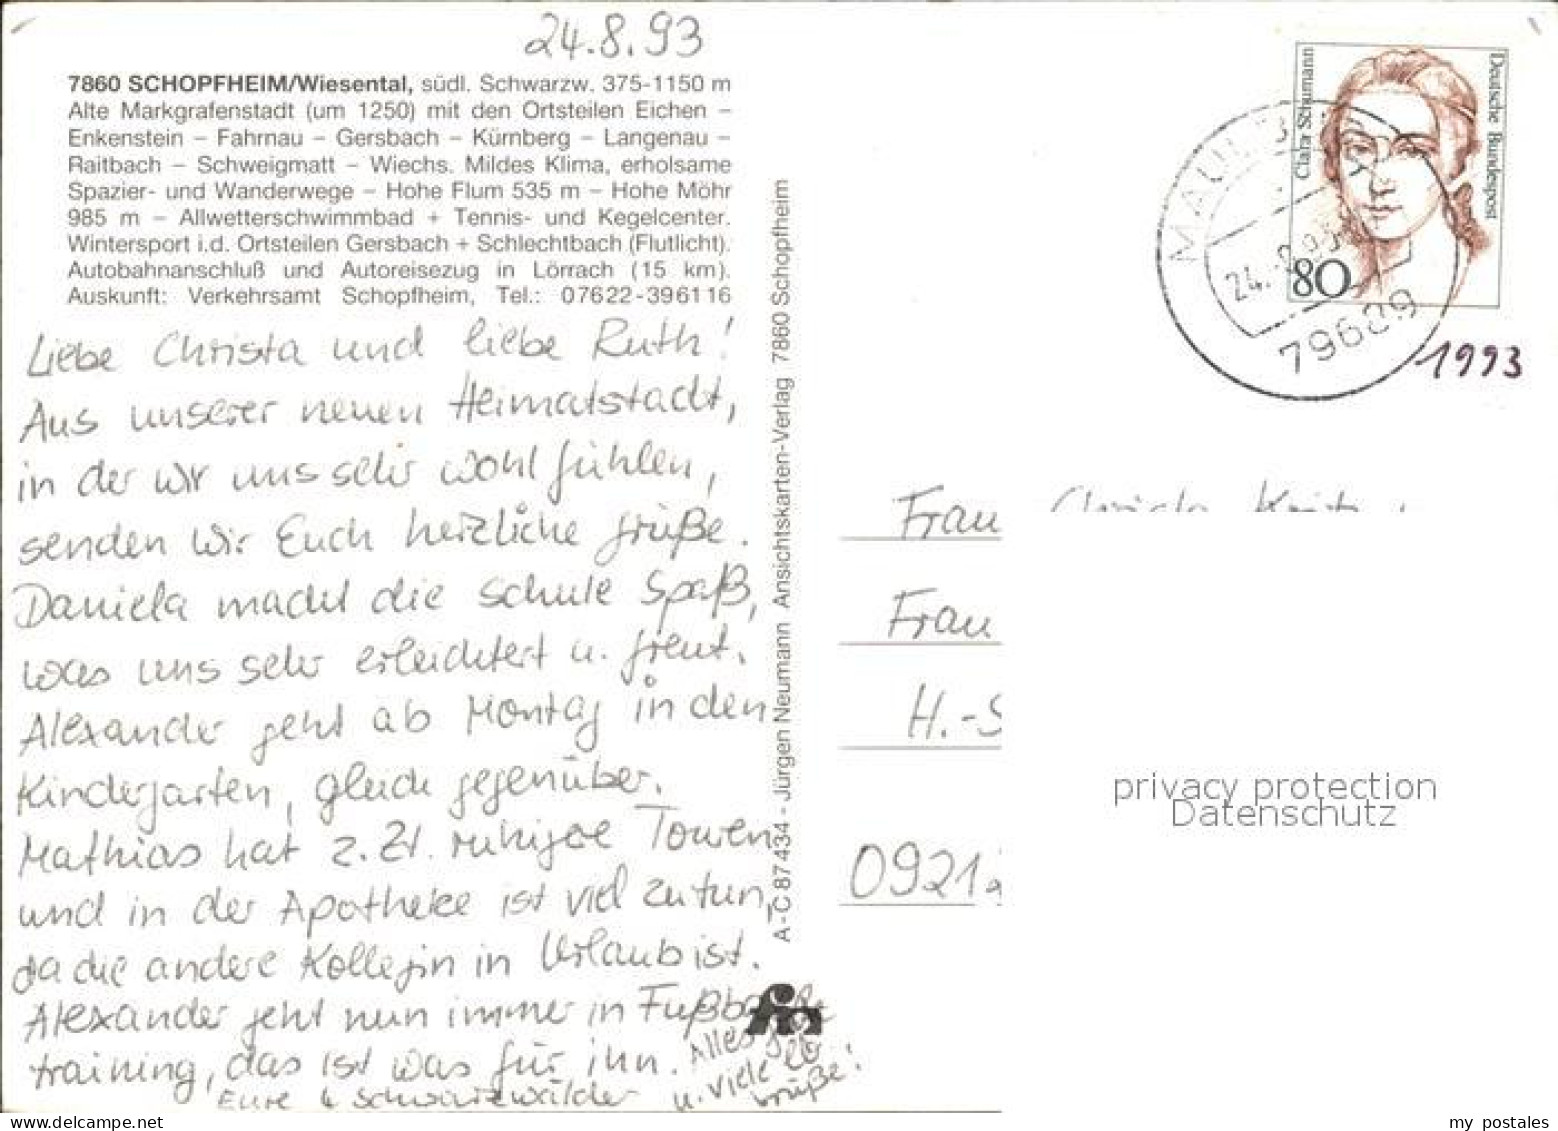 24.8.93
7860 SCHOPFHEIM/Wiesental, südl. Schwarzw. 375-1150 m
Alte Markgrafenstadt (um 1250) mit den Ortsteilen Eichen –
Enkenstein – Fahrnau – Gersbach – Kürnberg – Langenau –
Raitbach – Schweigmatt – Wiechs. Mildes Klima, erholsame
Spazier- und Wanderwege – Hohe Flum 535 m – Hohe Möhr
985 m – Allwetterschwimmbad + Tennis- und Kegelcenter.
Wintersport i.d. Ortsteilen Gersbach + Schlechtbach (Flutlicht).
Autobahnanschluß und Autoreisezug in Lörrach (15 km).
Auskunft: Verkehrsamt Schopfheim, Tel.: 07622-396116
Liebe Christa und liebe Ruth!
Aus unserer neuen Heimatstadt,
in der wir uns sehr wohl fühlen,
senden wir Euch herzliche Grüße.
Daniela macht die Schule Spaß,
was uns sehr erleichtert u. freut.
Alexander geht ab Montag in den
Kindergarten, gleich gegenüber.
Mathias hat z. Zt. ruhigere Touren,
und in der Apotheke ist viel zu tun,
da die andere Kollegin in Urlaub ist.
Alexander geht nun immer in Fußball
training, das ist was für ihn.
Alles
u. viele
Grüße!
Eure 4 Schwarzwälder
A-C 87434 - Jürgen Neumann Ansichtskarten-Verlag 7860 Schopfheim
Clara Schumann
Deutsche Bundespost
80
MAULBURG
24.-8.93
79689
1993
Frau Christa
Frau
H.-S
privacy protection
Datenschutz
0921
my postales